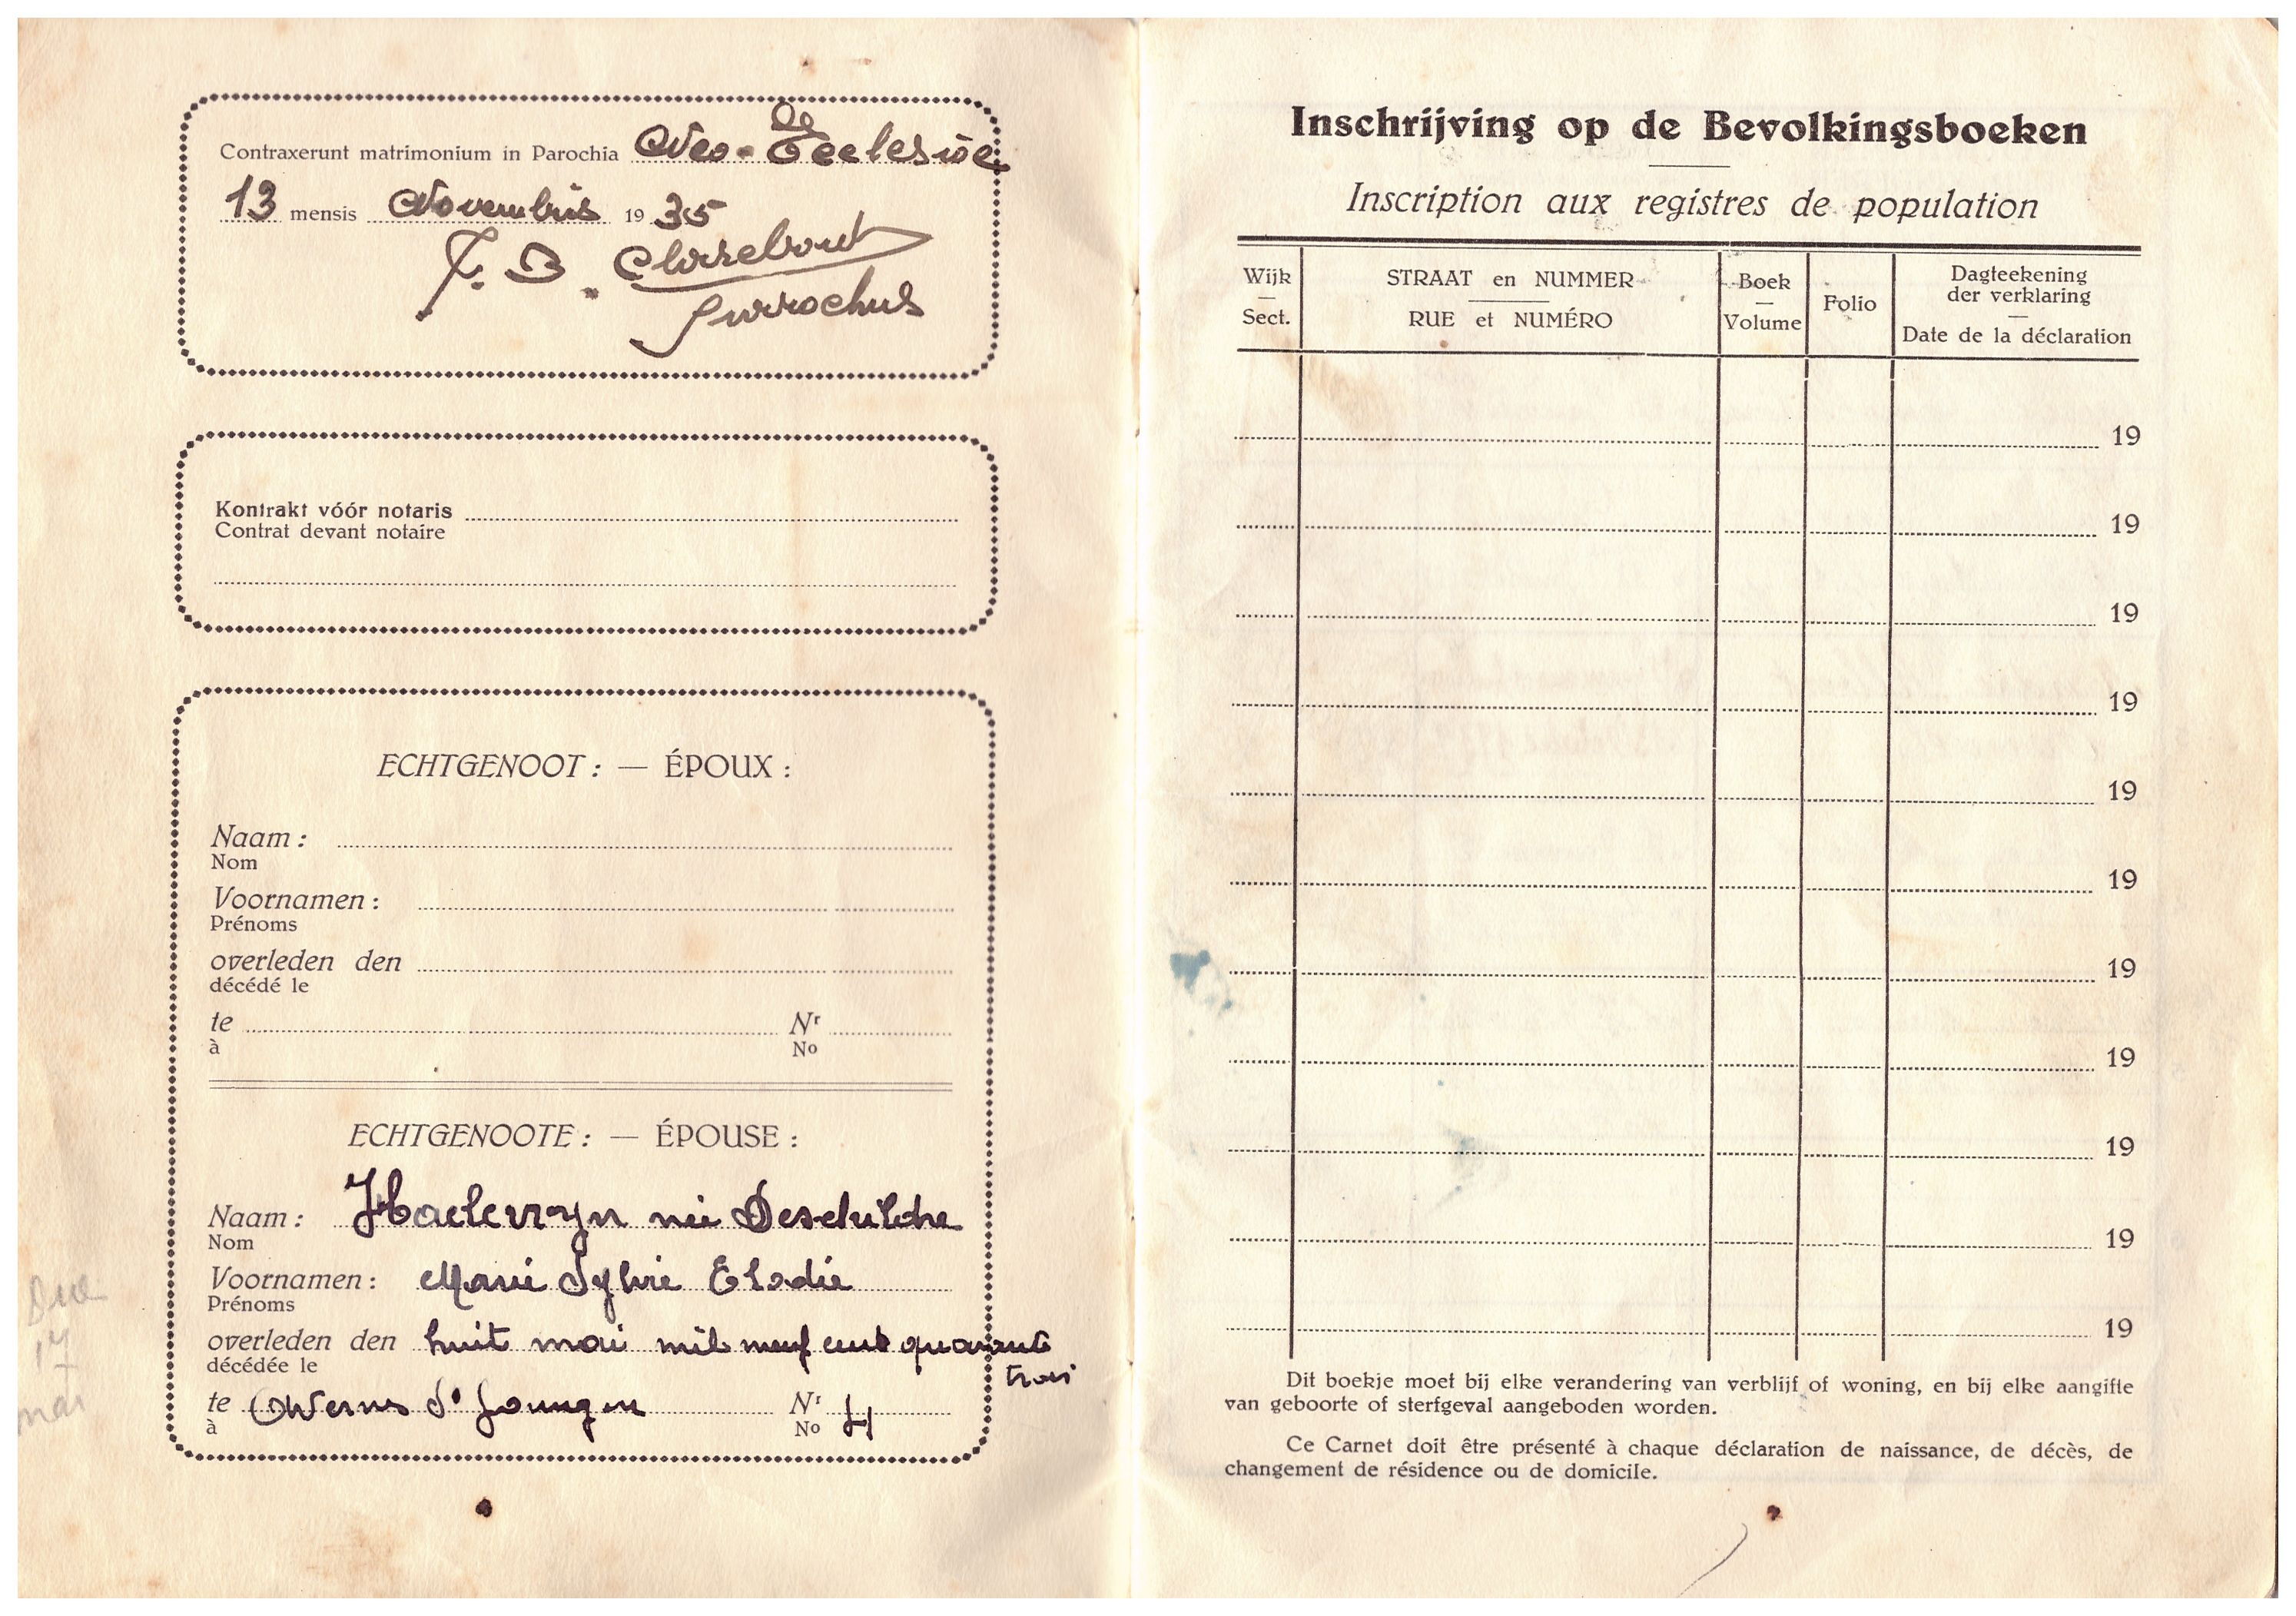 Contraxerunt matrimonium in Parochia de Neo-Ecclesiae
13 mensis Novembris 1935
Parrochus
Kontrakt vóór notaris
Contrat devant notaire
ECHTGENOOT : — ÉPOUX :
Naam :
Nom
Voornamen :
Prénoms
overleden den
décédé le
te Nr
à No
ECHTGENOOTE : — ÉPOUSE :
Naam : Haelewyn née Deschildre
Nom
Voornamen : Marie Sylvie Elodie
Prénoms
overleden den huit mai mil neuf cent quarante
décédée le trois
te Nr 4
à No
17
mai
Inschrijving op de Bevolkingsboeken
Inscription aux registres de population
Wijk — Sect.
STRAAT en NUMMER
RUE et NUMÉRO
Boek — Volume
Folio
Dagteekening
der verklaring
—
Date de la déclaration
19
19
19
19
19
19
19
19
19
19
19
Dit boekje moet bij elke verandering van verblijf of woning, en bij elke aangifte
van geboorte of sterfgeval aangeboden worden.
Ce Carnet doit être présenté à chaque déclaration de naissance, de décès, de
changement de résidence ou de domicile.